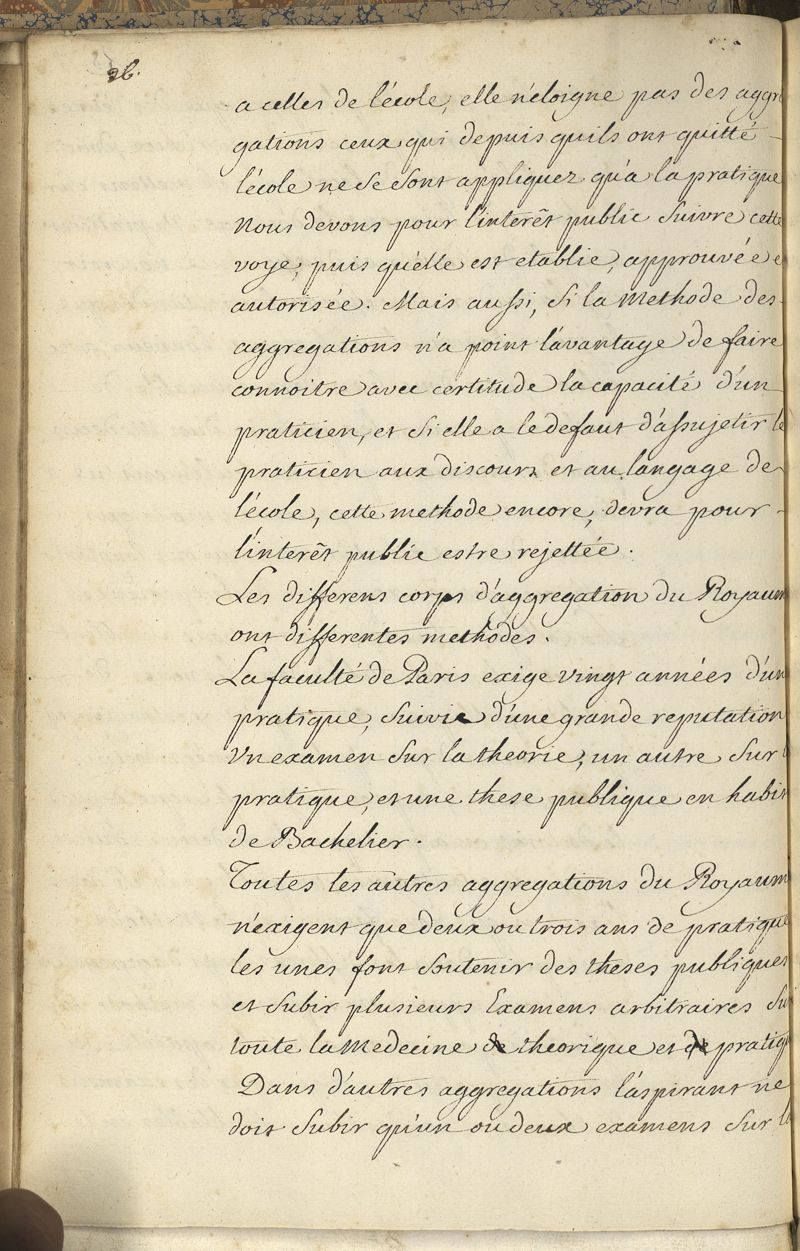 26.
a celles de l'école, elle n'éloigne pas des aggr
gations ceux qui depuis quils ont quitté
l'école ne se sont appliquez qu'a la pratique
Nous devons pour l'interêt public suivre cette
voye, puis qu'elle est etablie, approuvée e
autorisée. Mais aussi, si la Methode des
aggregations n'a point l'avantage de faire
connoitre avec certitude la capacité d'un
praticien, et si elle a le defaut d'assujetir le
praticien aux discours et au langage de
l'école, cette methode encore, devra pour
l'interêt public estre rejettée.
Les differens corps d'aggregation du Royaum
ont differentes methodes.
La faculté de Paris exige vingt années d'un
pratique, suivie d'une grande reputation
Un examen sur la theorie, un autre sur l
pratique, et une these publique en habit
de Bachelier.
Toutes les autres aggregations du Royaum
n'exigent que deux ou trois ans de pratique
les unes font soutenir des theses publiques
et subir plusieurs Examens arbitraires su
toute la Medecine theorique et pratiq
Dans d'autres aggregations l'aspirant ne
doit subir qu'un ou deux examens sur la